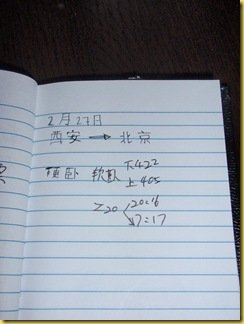 2月27日
西安 → 北京
硬卧 软卧 下422
上405
Z20 20:16
7:17